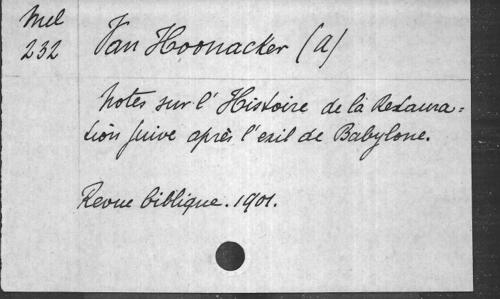 Mel
232
Van Hoonacker (A)
Notes sur l'Histoire de la Restaura=
tion juive après l'exil de Babylone.
Revue biblique. 1901.